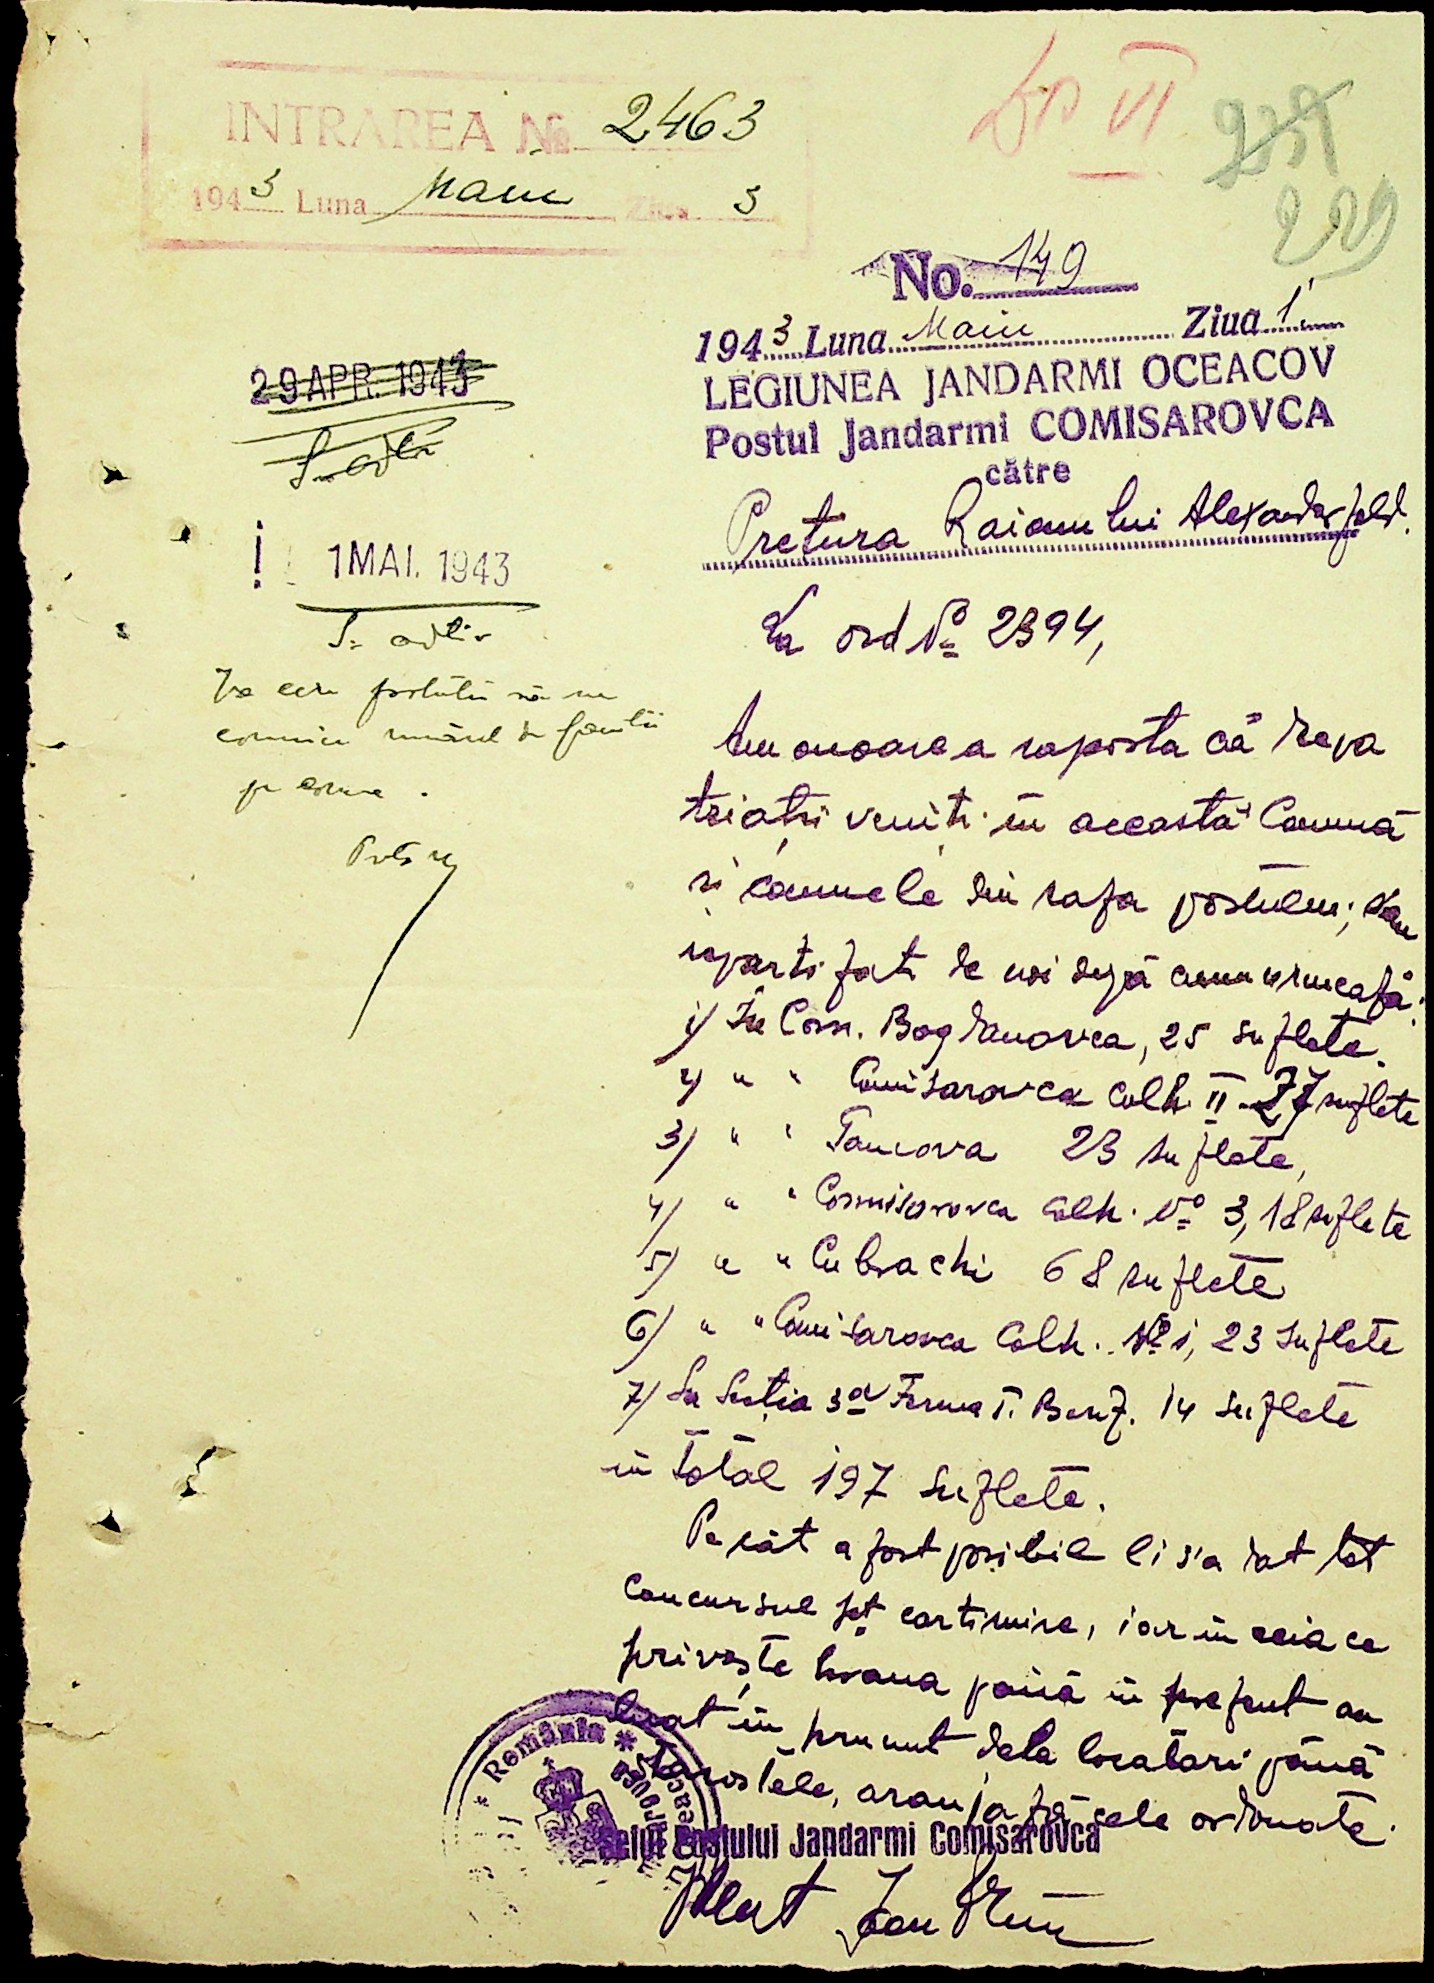 INTRAREA No 2463
1943 Luna Maiu Ziua 3
VI
229
No. 149
1943 Luna Maiu Ziua 1
LEGIUNEA JANDARMI OCEACOV
Postul Jandarmi COMISAROVCA
către
Pretura Raionului Alexanderfeld.
29 APR. 1943
1 MAI. 1943
Se va cere postului să ne
comunice numărul de familii
pe comune.
La ord No 2394,
Am onoarea a raporta că repa
triații veniți în această Comună
și comunele din raza postului; sau
repartizati de noi după cum urmează:
1/ În Com. Bogdanovca, 25 suflete.
2/ " " Comisarovca Colh. II 27 suflete
3/ " " Tancova 23 suflete,
4/ " " Comisarovca Colh. No 3, 18 suflete
5/ " " Cubrachi 68 suflete
6/ " " Comisarovca Colh. No 1, 23 suflete
7/ La Secția 3a Ferma T. Benz. 14 suflete
în total 197 suflete.
Pe cât a fost posibil li s'a dat tot
concursul pt cartiruire, iar în ceia ce
privește hrana până în prezent au
luat în prumut dela locatari până
Primăriile, aranjază cele ordonate.
România
Șeful Postului Jandarmi Comisarovca